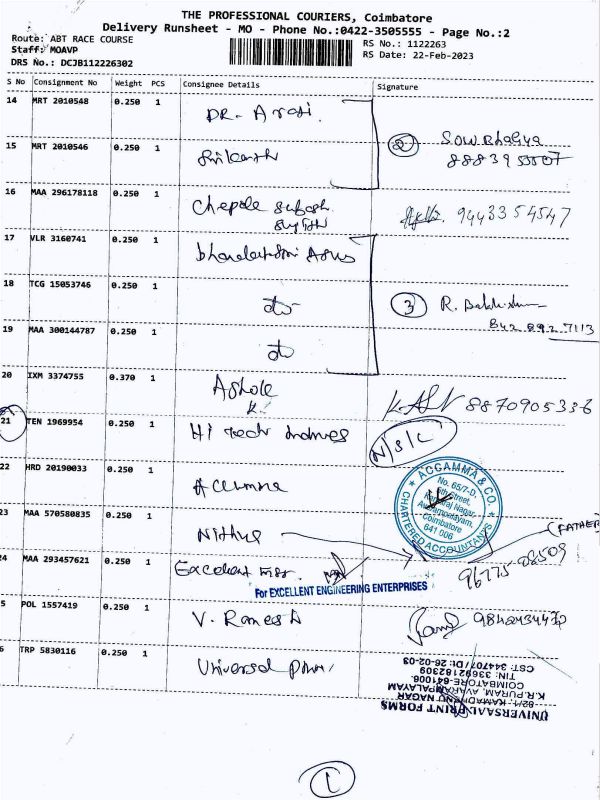 THE PROFESSIONAL COURIERS, Coimbatore
Delivery Runsheet - MO - Phone No.:0422-3505555 - Page No.:2
Route: ABT RACE COURSE
Staff: MOAVP
DRS No.: DCJB112226302
RS No.: 1122263
RS Date: 22-Feb-2023
S No Consignment No Weight PCS Consignee Details Signature
14 MRT 2010548 0.250 1 DR. Arasi.
15 MRT 2010546 0.250 1 Srikanth
2 Sow Bhagya
16 MAA 296178118 0.250 1 9443354547
17 VLR 3160741 0.250 1
18 TCG 15053746 0.250 1 do
3 R.
842 892 7113
19 MAA 300144787 0.250 1 do
20 IXM 3374755 0.370 1 Ashok K. 8870905336
21 TEN 1969954 0.250 1 Hi tech N/S/L
22 HRD 20190033 0.250 1
ACCAMMA & CO.
No. 65/7-D,
Kamaraj Nagar,
Coimbatore
641 006
CHARTERED ACCOUNTANTS
23 MAA 570580835 0.250 1 Nithya (FATHER)
24 MAA 293457621 0.250 1 Excellent
For EXCELLENT ENGINEERING ENTERPRISES
5 POL 1557419 0.250 1 V. Ramesh
6 TRP 5830116 0.250 1 Universal
UNIVERSAAL PRINT FORMS
82/1, KAMADHENU NAGAR
K.R.PURAM, AVARAMPALAYAM
COIMBATORE-641006.
TIN: 33692182309
CST: 344707/Dt: 26-02-03
1